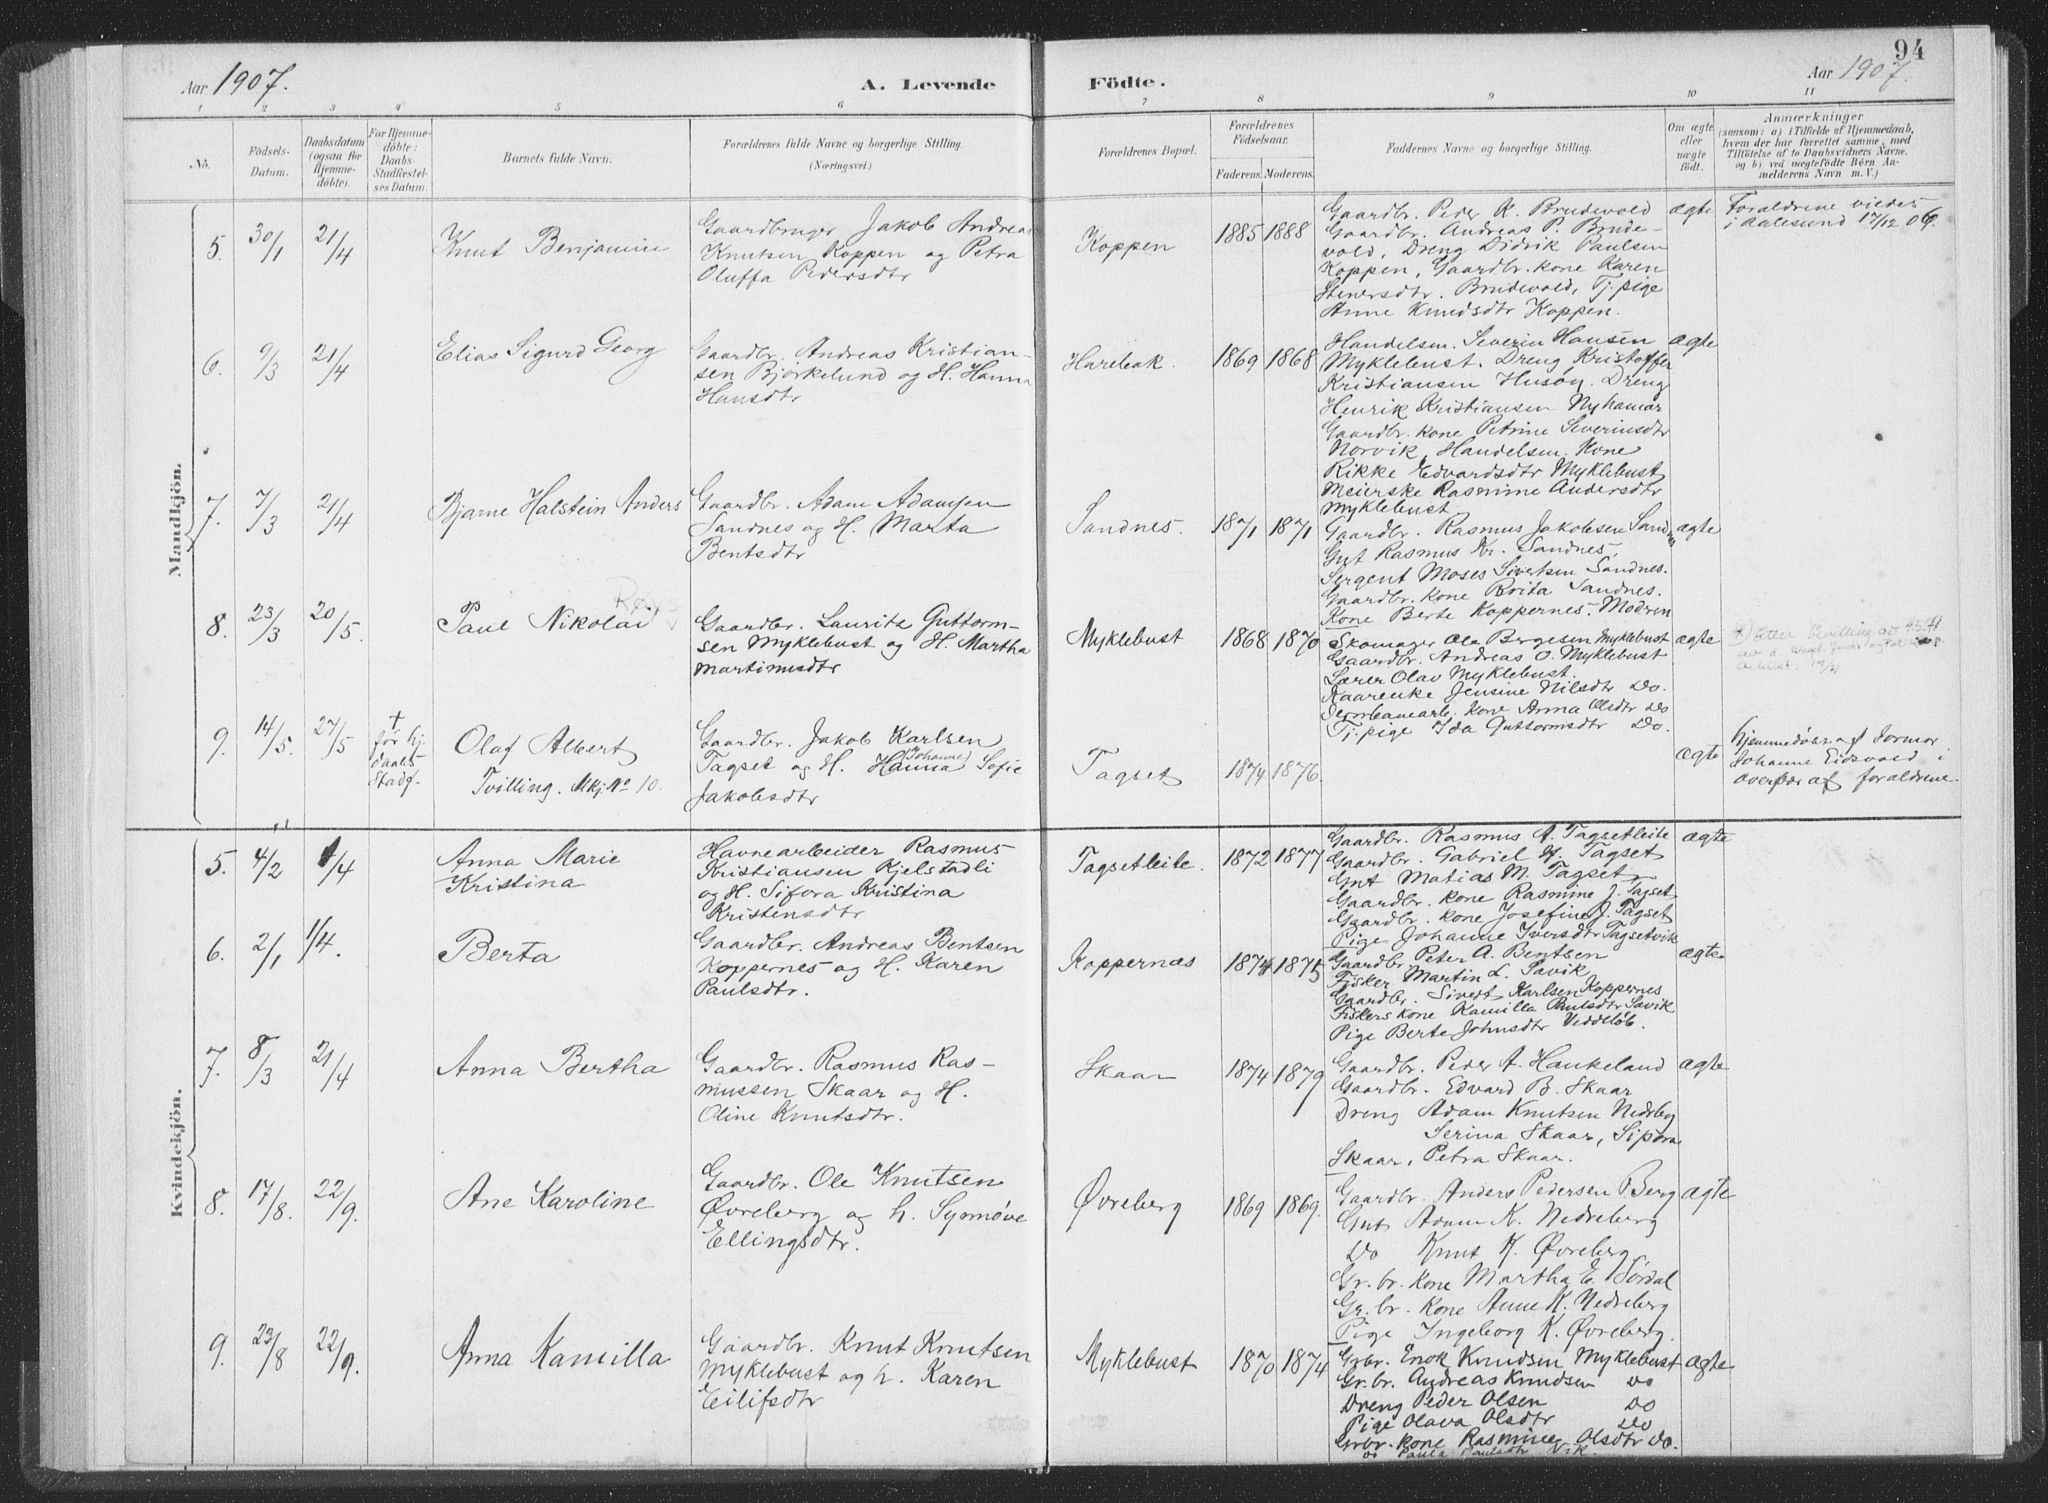 94
Aar 1907.
A. Levende Födte.
Aar 1907.
1 2 3 4 5 6 7 8 9 10 11
No.
Födsels-Datum.
Daabsdatum (ogsaa for Hjemmedöbte).
For Hjemmedöbte: Daabs-Stadfestelses Datum.
Barnets fulde Navn.
Forældrenes fulde Navne og borgerlige Stilling. (Næringsvei.)
Forældrenes Bopæl.
Forældrenes Födselsaar.
Faderens. Moderens.
Faddernes Navne og borgerlige Stilling.
Om ægte eller uægte födt.
Anmærkninger
(saasom: a) i Tilfælde af Hjemmedaab, hvem der har forrettet samme, med Tilföielse af to Daabsvidners Navne, og b) ved uegtefödte Börn Anmelderens Navn m. V.)
Mandkjön.
5. 30/1 21/4 Knut Benjamin
Gaardbruger Jakob Andreas
Knutsen Koppen og Petra
Oluffa Pedersdtr
Koppen 1885 1888
Gaardbr. Peder K. Brudevold
Gaardbr. Andreas P. Brude-
vold, Dreng Didrik Paulsen
Koppen, Gaardbr. kone Karen
Stenersdtr. Brudevold, Tj. pige
Anne Knudsdtr Koppen.
ægte
Forældrene viedes
i Aalesund 17/12 06.
6. 9/3 21/4 Elias Sigurd Georg
Gaardbr. Andreas Kristian-
sen Bjørkelund og H. Hanna
Hansdtr
Harebak. 1869 1868
Handelsm. Severin Hansen
Myklebust. Dreng Kristoffer
Kristiansen Husøy. Dreng
Henrik Kristiansen Nyhamar
Gaardbr. kone Petrine Severinsdtr
Norvik, Handelsm. Kone
Rikke Edvardsdtr Myklebust
Meierske Rasmine Andersdtr
Myklebust.
ægte
7. 7/3 21/4 Bjarne Halstein Anders
Gaardbr. Adam Adamsen
Sandnes og H. Marta
Bentsdtr
Sandnes. 1871 1871
Gaardbr. Rasmus Jakobsen Sandnes
Gut Rasmus Kr. Sandnes,
Sergent Moses Sivertsen Sandnes.
Gaardbr. kone Brita Sandnes.
Kone Berte Koppernes. Modren
ægte
8. 23/3 20/5. Paul Nikolai
Gaardbr. Laurits Guttorm-
sen Myklebust og H. Martha
Martinusdtr
Myklebust 1868 1870
Skomager Ola Børgesen Myklebust
Gaardbr. Andreas O. Myklebust
Lærer Olav Myklebust.
Kaarenke Jensine Nilsdtr Do.
Jernbanearb. kone Anna Olsdtr Do
Tj. pige Ida Guttormsdtr Do.
ægte
9. 14/5. 27/5
† før hj.
daabs
Stadf.
Olaf Albert
Tvilling. Mkj. No 10.
Gaardbr. Jakob Karlsen
Tagset og H. Hanna (Johanne) Sofie
Jakobsdtr
Tagset 1874 1876.
ægte
hjemmedøbt af Jormor
Johanne Eidsvold i
overvær af forældrene
Kvindekjön.
5. 4/2 1/4 Anna Marie
Kristina
Havnearbeider Rasmus
Kristiansen Kjelstadli
og H. Sifora Kristina
Kristensdtr
Tagsetleite. 1872 1877
Gaardbr. Rasmus A. Tagsetleite
Gaardbr. Gabriel H. Tagset
Gut Matias M. Tagset
Gaardbr. kone Rasmine J. Tagset
Gaardbr. kone Josefine J. Tagset
Pige Johanne Iversdtr Tagsetvik
ægte
6. 2/1 1/4. Berta
Gaardbr. Andreas Bentsen
Koppernes og H. Karen
Paulsdtr.
Koppernæs 1874 1875
Gaardbr. Peter A. Bentsen
Fisker Martin L. Savik
Gaardbr. Sivert Karlsen Koppernes
Fiskers kone Kamilla Paulsdtr Savik
Pige Berte Johnsdtr Veddeløb.
ægte
7. 8/3 21/4 Anna Bertha
Gaardbr. Rasmus Ras-
mussen Skaar og H.
Oline Knutsdtr.
Skaar 1874 1879
Gaardbr. Peder A. Haukeland
Gaardbr. Edvard B. Skaar
Dreng Adam Knutsen Nedreberg
Serina Skaar, Sipora
Skaar, Petra Skaar.
ægte
8. 17/8. 22/9. Ane Karoline
Gaardbr. Ole Knutsen
Øvreberg og h. Synnøve
Ellingsdtr.
Øvreberg 1869 1869.
Gaardbr. Anders Pedersen Berg
Gut Adam K. Nedreberg
Do Knut K. Øvreberg
Gr. br. kone Martha E. Sørdal
Gr. br. Kone Anne K. Nedreberg
Pige Ingeborg K. Øvreberg.
ægte
9. 23/8 22/9. Anna Kamilla
Gaardbr. Knut Knutsen
Myklebust og h. Karen
Eilifsdtr
Myklebust 1870 1874
Grbr. Enok Knudsen Myklebust
Gr. br. Andreas Knudsen Do
Dreng Peder Olsen Do
Pige Olava Olsdtr Do
Grbr. kone Rasmine Olsdtr Do.
Do Paula Paulsdtr Vik
ægte